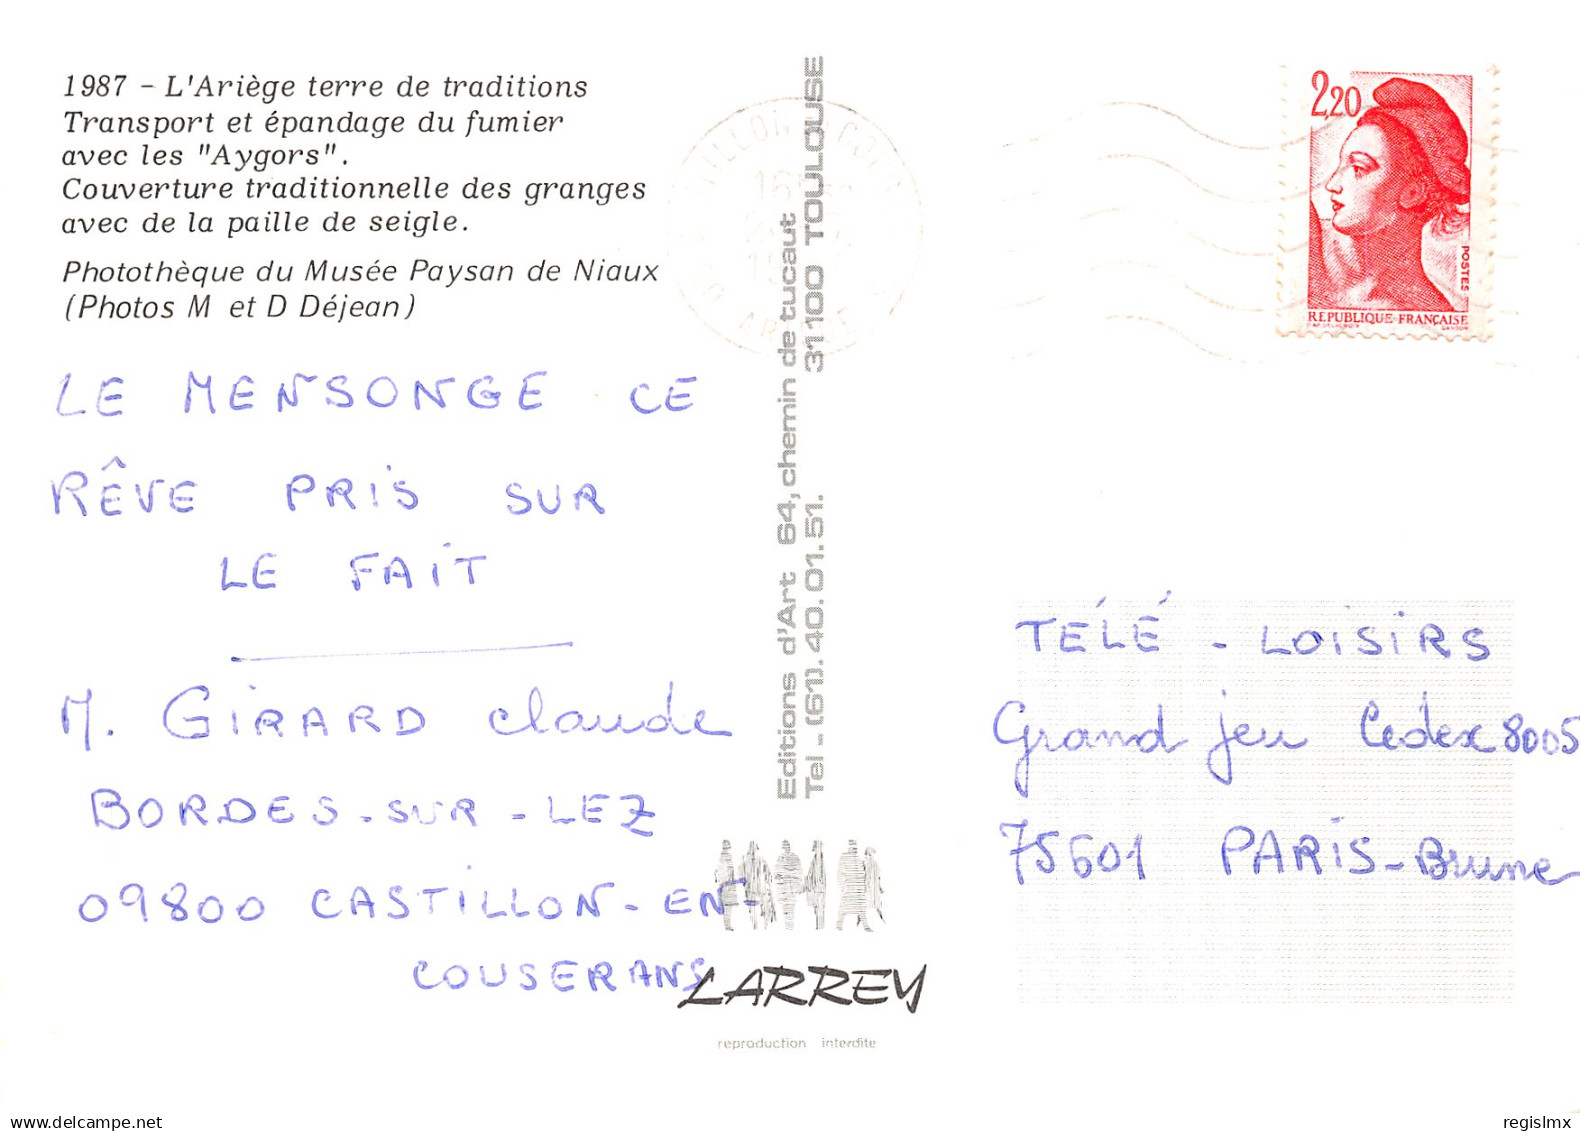 1987 - L'Ariège terre de traditions
Transport et épandage du fumier
avec les "Aygors".
Couverture traditionnelle des granges
avec de la paille de seigle.
Photothèque du Musée Paysan de Niaux
(Photos M et D Déjean)
LE MENSONGE CE
RÊVE PRIS SUR
LE FAIT
M. GIRARD Claude
BORDES-SUR-LEZ
09800 CASTILLON-EN-
COUSERANS
Editions d'Art 64, chemin de tucaut
Tel - (61). 40.01.51. 31100 TOULOUSE
LARREY
reproduction interdite
2,20
POSTES
REPUBLIQUE-FRANÇAISE
TÉLÉ - LOISIRS
Grand jeu Cedex 8005
75601 PARIS-Brune
regislmx